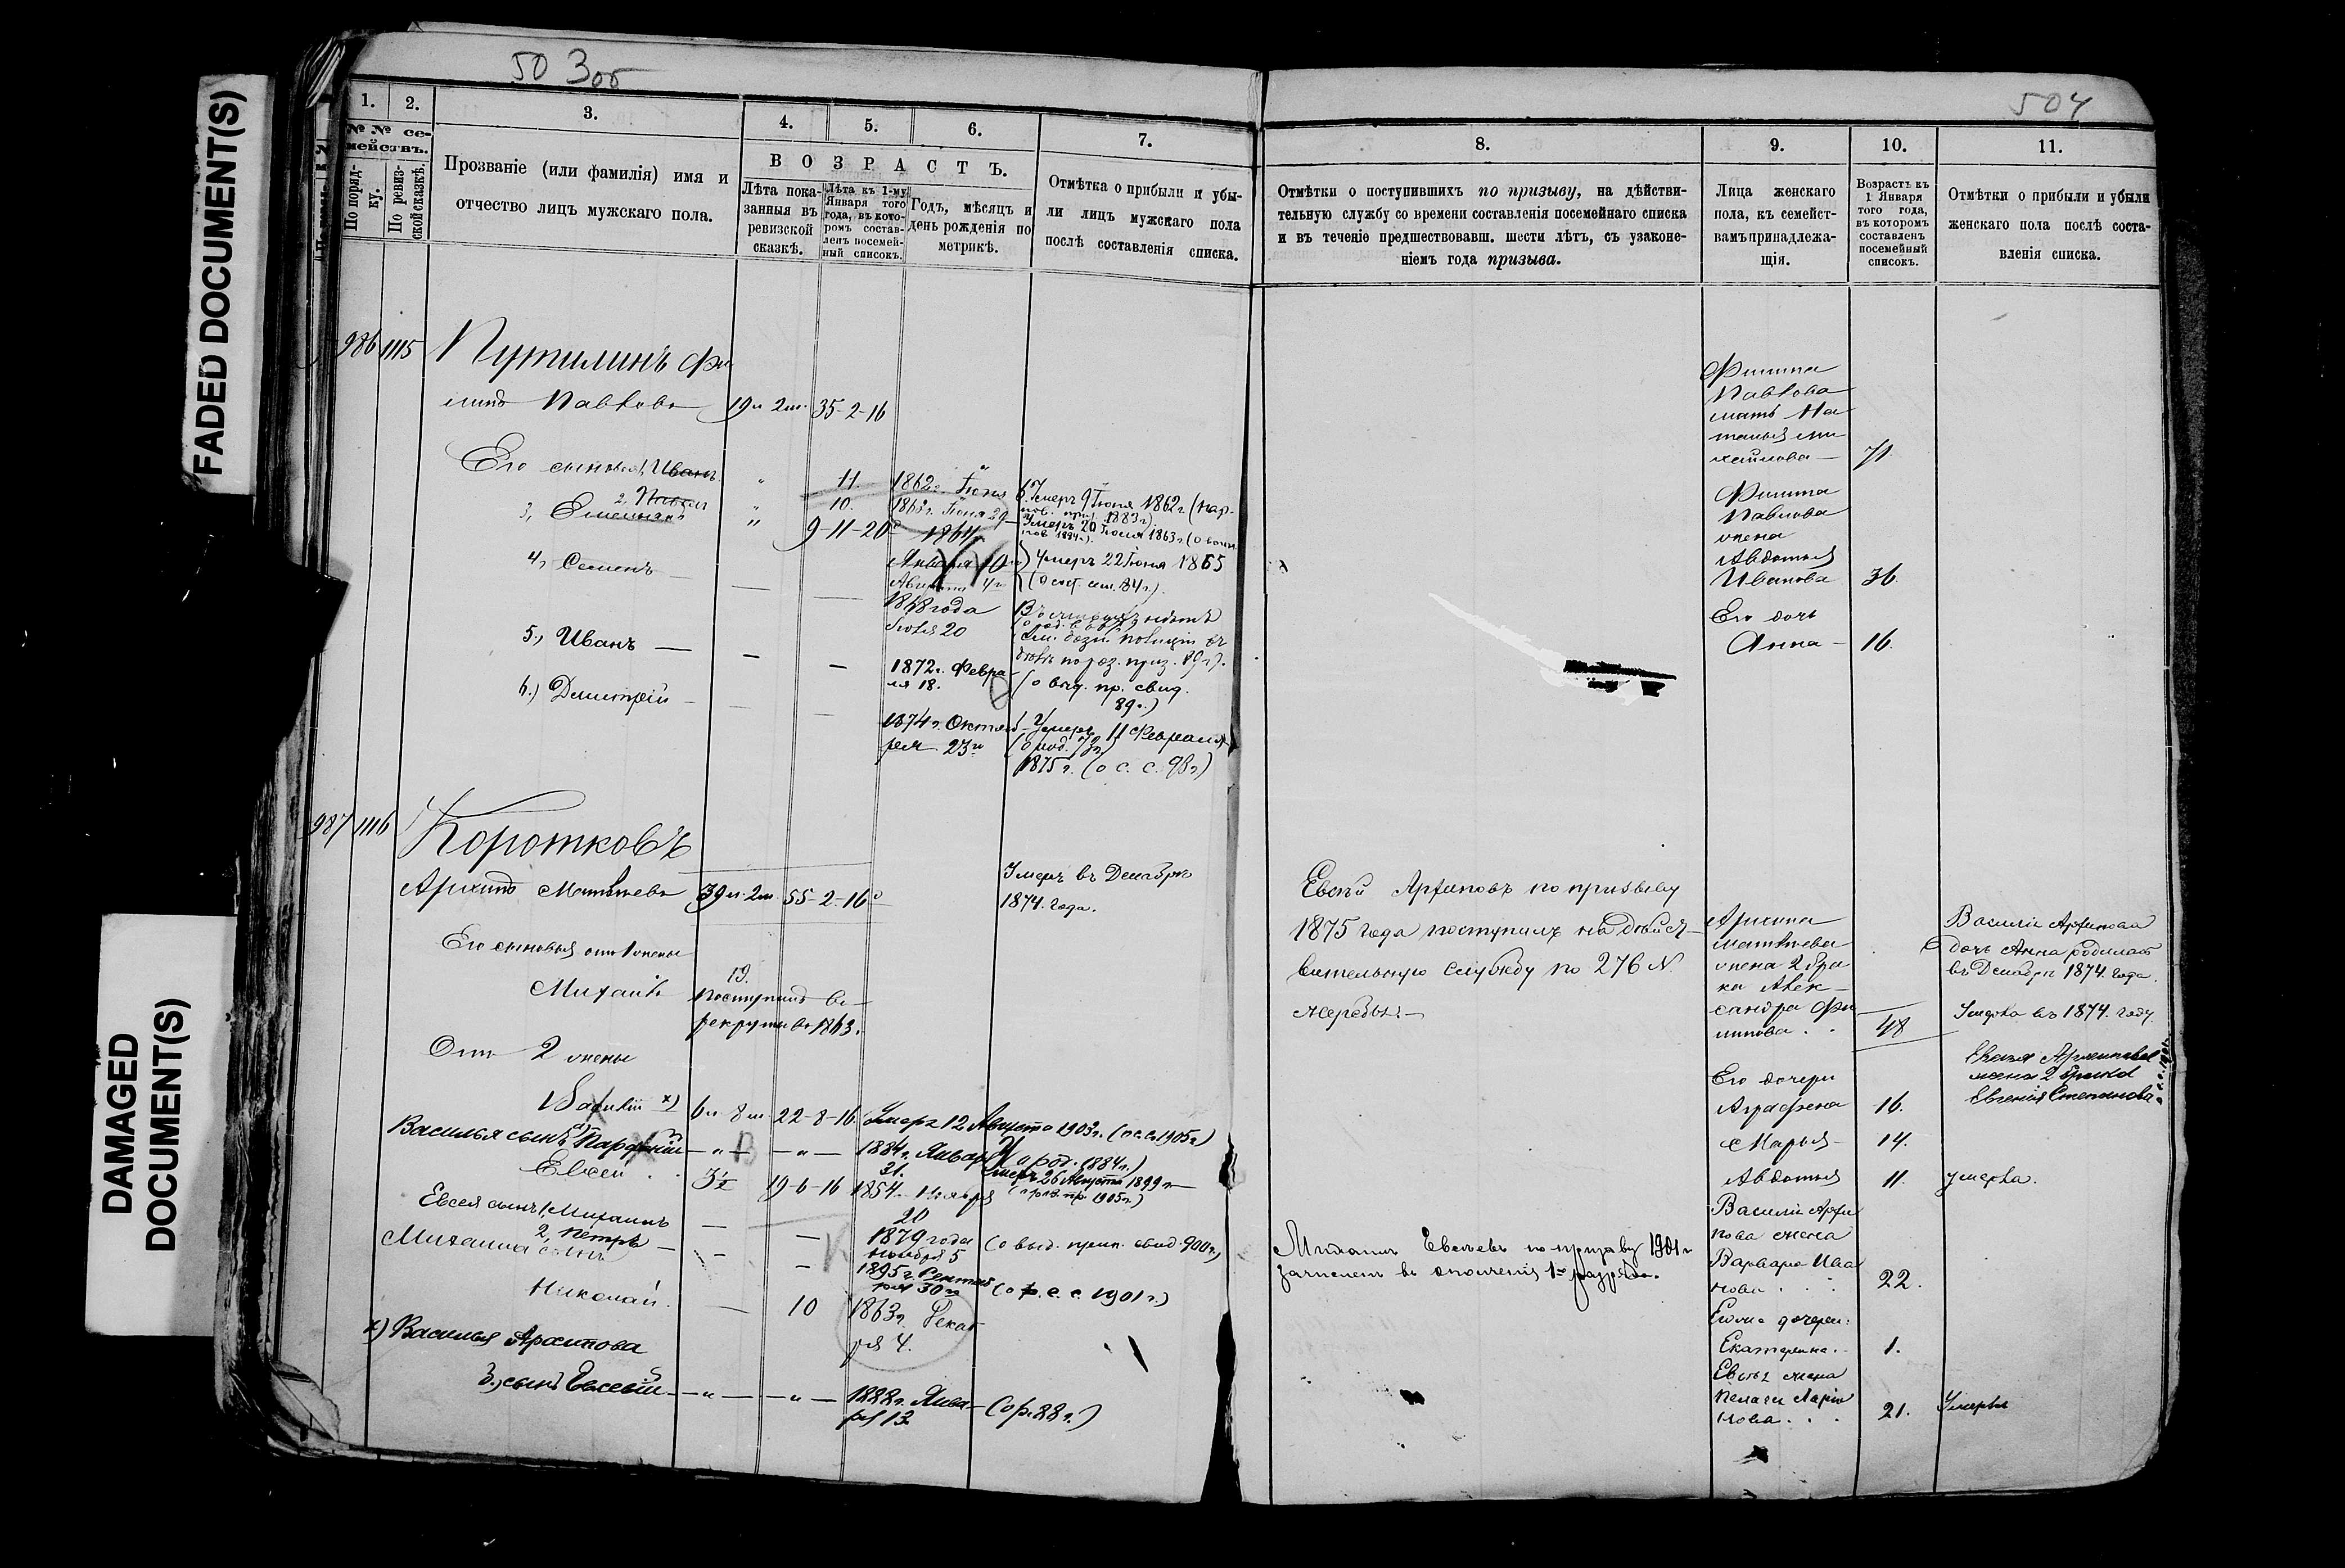 50 3об
504
FADED DOCUMENT(S)
DAMAGED
DOCUMENT(S)
1.
2.
3.
4.
5.
6.
7.
№ № се-
мействъ.
По поряд-
ку.
По ревиз-
ской сказкѣ.
Прозваніе (или фамилія) имя и
отчество лицъ мужскаго пола.
ВОЗРАСТЪ.
Лѣта пока-
занныя въ
ревизской
сказкѣ.
Лѣта къ 1-му
Января того
года, въ кото-
ромъ состав-
ленъ посемей-
ный списокъ.
Годъ, мѣсяцъ и
день рожденія по
метрикѣ.
Отмѣтка о прибыли и убы-
ли лицъ мужскаго пола
послѣ составленія списка.
986 1115 Путилинъ Фи
липъ Павловъ 19 и 2 м. 35-2-16
Его сыновья 1, Иванъ " 11. 1862 г. Іюня 6. Умеръ 9 Іюня 1862 г.
2, Павелъ " 10. 1863 г. Іюня 29 Умеръ 20 Іюля 1863 г.
3, Емельянъ " 9-11-20 1864
Января 10 Умеръ 22 Іюня 1865
4, Семенъ — — Августа
1868 года
Іюля 20
5, Иванъ — — — 1872 г. Февра-
ля 18. (о выд. пр. свид.
89 г.)
6.) Дмитрій — — — 1874 г. Октяб
ря 23 Умеръ 11 Февраля
1875 г. (о с. с. 98 г)
987 1116 Коротковъ
Архипъ Матвѣевъ 39 и 2 м 55-2-16 Умеръ въ Декабрѣ
1874. года.
Его сыновья отъ 1 жены
Михаилъ 19.
поступилъ въ
рекруты въ 1863 г.
Отъ 2 жены
Василій х) 6 и 8 м 22-8-16 Умеръ 12 Августа 1903 г. (о с. с. 1905 г)
Василья сынъ Парфеній — " — — " — 1884 г. Января
31. (о род. 1884 г.)
Евсей 3½ 19-6-16 1854 Ноября
20 Умеръ 26 Августа 1899 г
Евсея сынъ 1, Михаилъ — — 1879 года
Ноября 5 (о выд. прип. свид. 900 г.)
2, Петръ — — — 1895 г. Сентяб
ря 30 (о р. с. с. 1901 г.)
Михаила сынъ
Николай. — 10 1863 г. Декаб
ря 4.
х) Василья Архипова
3, сынъ Евсевій — " — — " — 1888 г. Янва-
ря 13 (о р. 88 г.)
8.
9.
10.
11.
Отмѣтки о поступившихъ по призыву, на дѣйстви-
тельную службу со времени составленія посемейнаго списка
и въ теченіе предшествовавш. шести лѣтъ, съ узаконе-
ніемъ года призыва.
Лица женскаго
пола, къ семейст-
вамъ принадлежа-
щія.
Возрастъ къ
1 Января
того года,
въ которомъ
составленъ
посемейный
списокъ.
Отмѣтки о прибыли и убыли
женскаго пола послѣ соста-
вленія списка.
Филипа
Павлова
мать На
талья Ми
хайлова — 71.
Филипа
Павлова
жена
Авдотья
Иванова 36.
Его дочь
Анна — 16.
Евсей Архиповъ по призыву
1875 года поступилъ на дѣйст
вительную службу по 276 №
жеребья —
Архипа
Матвѣева
жена 2 бра
ка Алек-
сандра Фи
липова . . 48 Умерла въ 1874. году.
Василія Архипова
дочь Анна родилась
въ Декабрѣ 1874. года.
Его дочери
Аграфена 16.
Марья — 14.
Авдотья 11. умерла.
Евсея Архипова
жена 2 брака
Евгенія Степанова
Василія Архи
пова жена
Варвара Ива
нова . . . 22.
Михаилъ Евсеевъ по призыву 1901 г
зачисленъ въ ополченіе 1го разряда.
Екатерина . 1.
Евсея жена
Пелагея Ларіо
нова . . . 21. Умерла